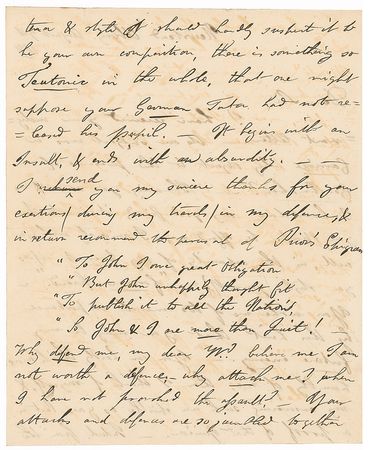 tenor & style I should hardly suspect it to
be your own composition, there is something so
Teutonic in the whole, that one might
suppose your German Tutor had not re-
-leased his pupil. — It begins with an
Insult, & ends with an absurdity. — —
I send you my sincere thanks for your
exertions / during my travels / in my defence, &
in return recommend the perusal of Prior's Epigram
"To John I owe great Obligation
"But John unhappily thought fit
"To publish it to all the Nation,
"So John & I are more than Quit! —
Why defend me, my dear Wr? believe me I am
not worth a defence, why attack me? when
I have not provoked the assault? — Your
attacks and defences are so jumbled together